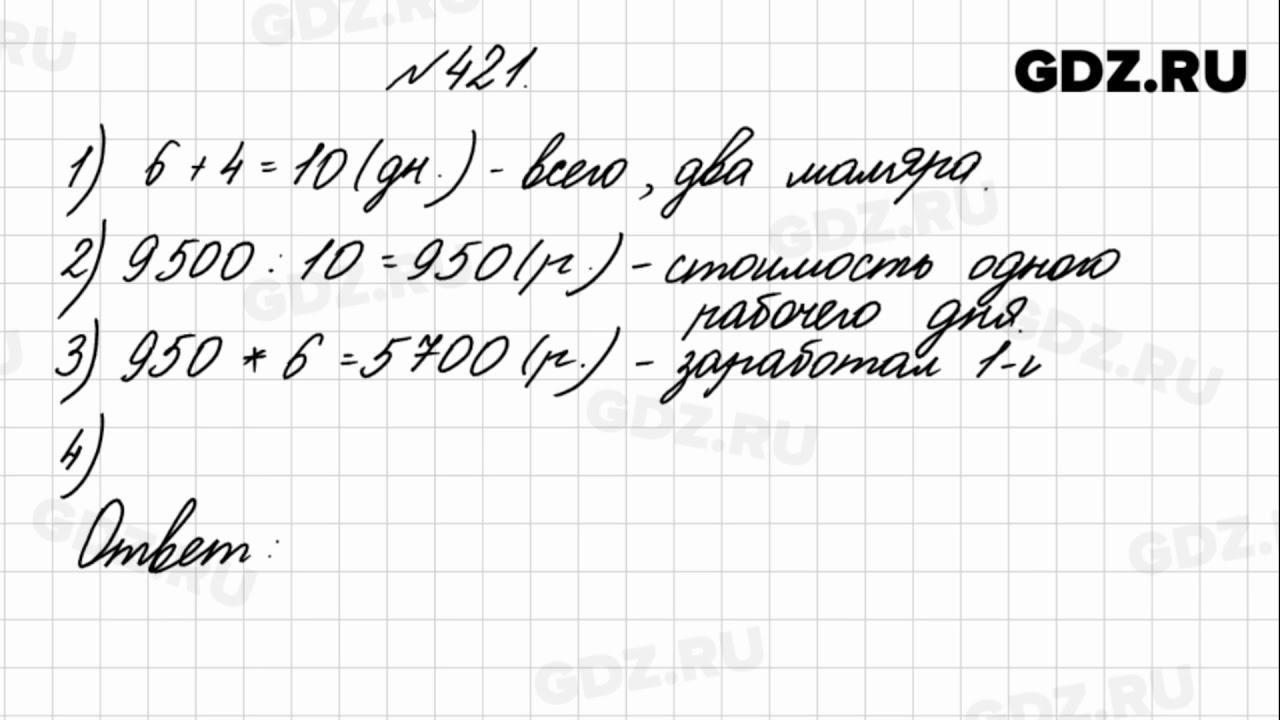 №421.
GDZ.RU
1) 6 + 4 = 10 (дн.) - всего, два маляра.
2) 9500 : 10 = 950 (р.) - стоимость одного
рабочего дня.
3) 950 * 6 = 5700 (р.) - заработал 1-й
4)
Ответ: